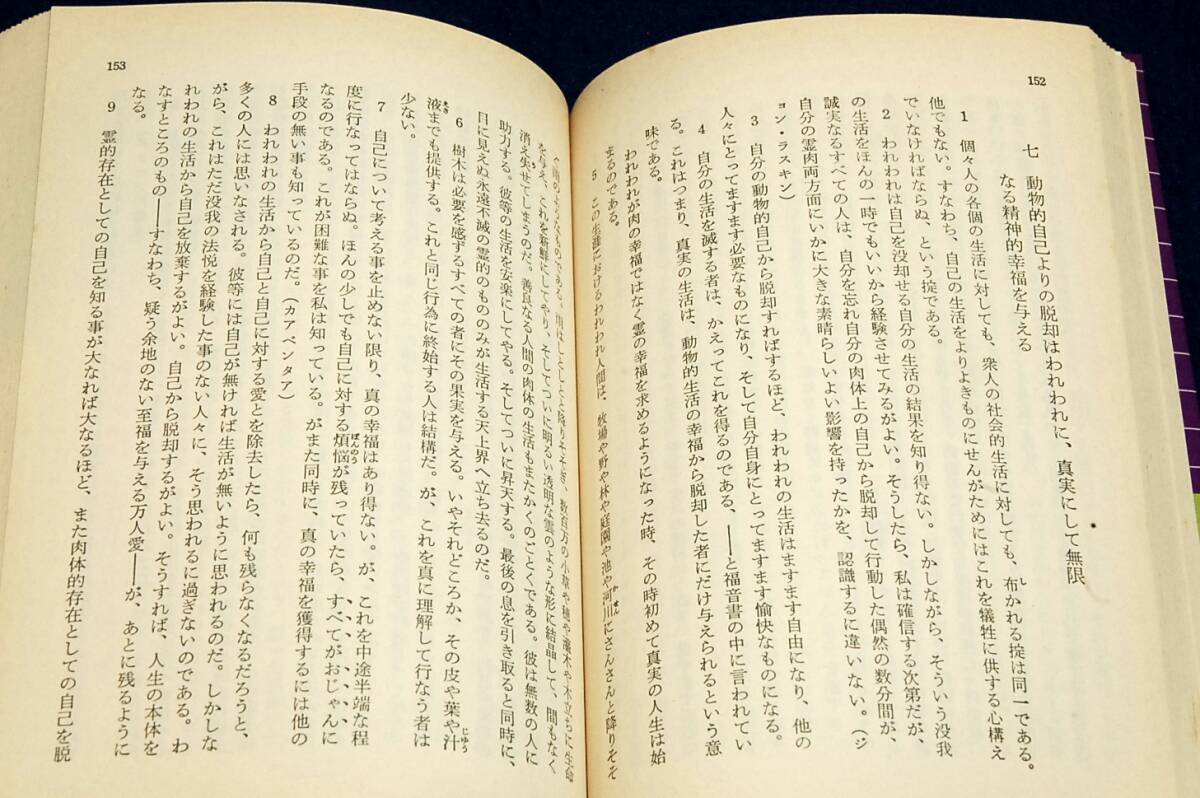 152
七　動物的自己よりの脱却はわれわれに、真実にして無限
なる精神的幸福を与える
1　個々人の各個の生活に対しても、衆人の社会的生活に対しても、布かれる掟は同一である。
他でもない。すなわち、自己の生活をよりよきものにせんがためにはこれを犠牲に供する心構え
でいなければならぬ、という掟である。
2　われわれは自己を没却せる自分の生活の結果を知り得ない。しかしながら、そういう没我
の生活をほんの一時でもいいから経験させてみるがよい。そうしたら、私は確信する次第だが、
誠実なるすべての人は、自分を忘れ自分の肉体上の自己から脱却して行動した偶然の数分間が、
自分の霊肉両方面にいかに大きな素晴らしいよい影響を持ったかを、認識するに違いない。（ジ
ョン・ラスキン）
3　自分の動物的自己から脱却すればするほど、われわれの生活はますます自由になり、他の
人々にとってますます必要なものになり、そして自分自身にとってますます愉快なものになる。
4　自分の生活を滅する者は、かえってこれを得るのである、――と福音書の中に言われてい
る。これはつまり、真実の生活は、動物的生活の幸福から脱却した者にだけ与えられるという意
味である。
われわれが肉の幸福ではなく霊の幸福を求めるようになった時、その時初めて真実の人生は始
まるのである。
5　この生涯におけるわれわれ人間は、牧場や野や林や庭園や池や河川にさんさんと降りそそ
153
ぐ雨のようなものである。雨はしとしとと降りそそぎ、数百万の小草や穂や灌木や木立ちに生命
を与え、これを新鮮にしてやり、そしてついに明るい透明な雲のような形に結晶して、間もなく
消え失せてしまうのだ。善良なる人間の肉体の生活もまたかくのごとくである。彼は無数の人に
助力する。彼等の生活を安楽にしてやる。そしてついに昇天する。最後の息を引き取ると同時に、
目に見えぬ永遠不滅の霊的のもののみが生活する天上界へ立ち去るのだ。
6　樹木は必要を感ずるすべての者にその果実を与える。いやそれどころか、その皮や葉や汁
液までも提供する。これと同じ行為に終始する人は結構だ。が、これを真に理解して行なう者は
少ない。
7　自己について考える事を止めない限り、真の幸福はあり得ない。が、これを中途半端な程
度に行なってはならぬ。ほんの少しでも自己に対する煩悩が残っていたら、すべてがおじゃんに
なるのである。これが困難な事を私は知っている。がまた同時に、真の幸福を獲得するには他の
手段の無い事も知っているのだ。（カアペンタア）
8　われわれの生活から自己と自己に対する愛とを除去したら、何も残らなくなるだろうと、
多くの人には思いなされる。彼等には自己が無ければ生活が無いように思われるのだ。しかしな
がら、これはただ没我の法悦を経験した事のない人々に、そう思われるに過ぎないのである。わ
れわれの生活から自己を放棄するがよい。自己から脱却するがよい。そうすれば、人生の本体を
なすところのもの――すなわち、疑う余地のない至福を与える万人愛――が、あとに残るように
なる。
9　霊的存在としての自己を知る事が大なれば大なるほど、また肉体的存在としての自己を脱